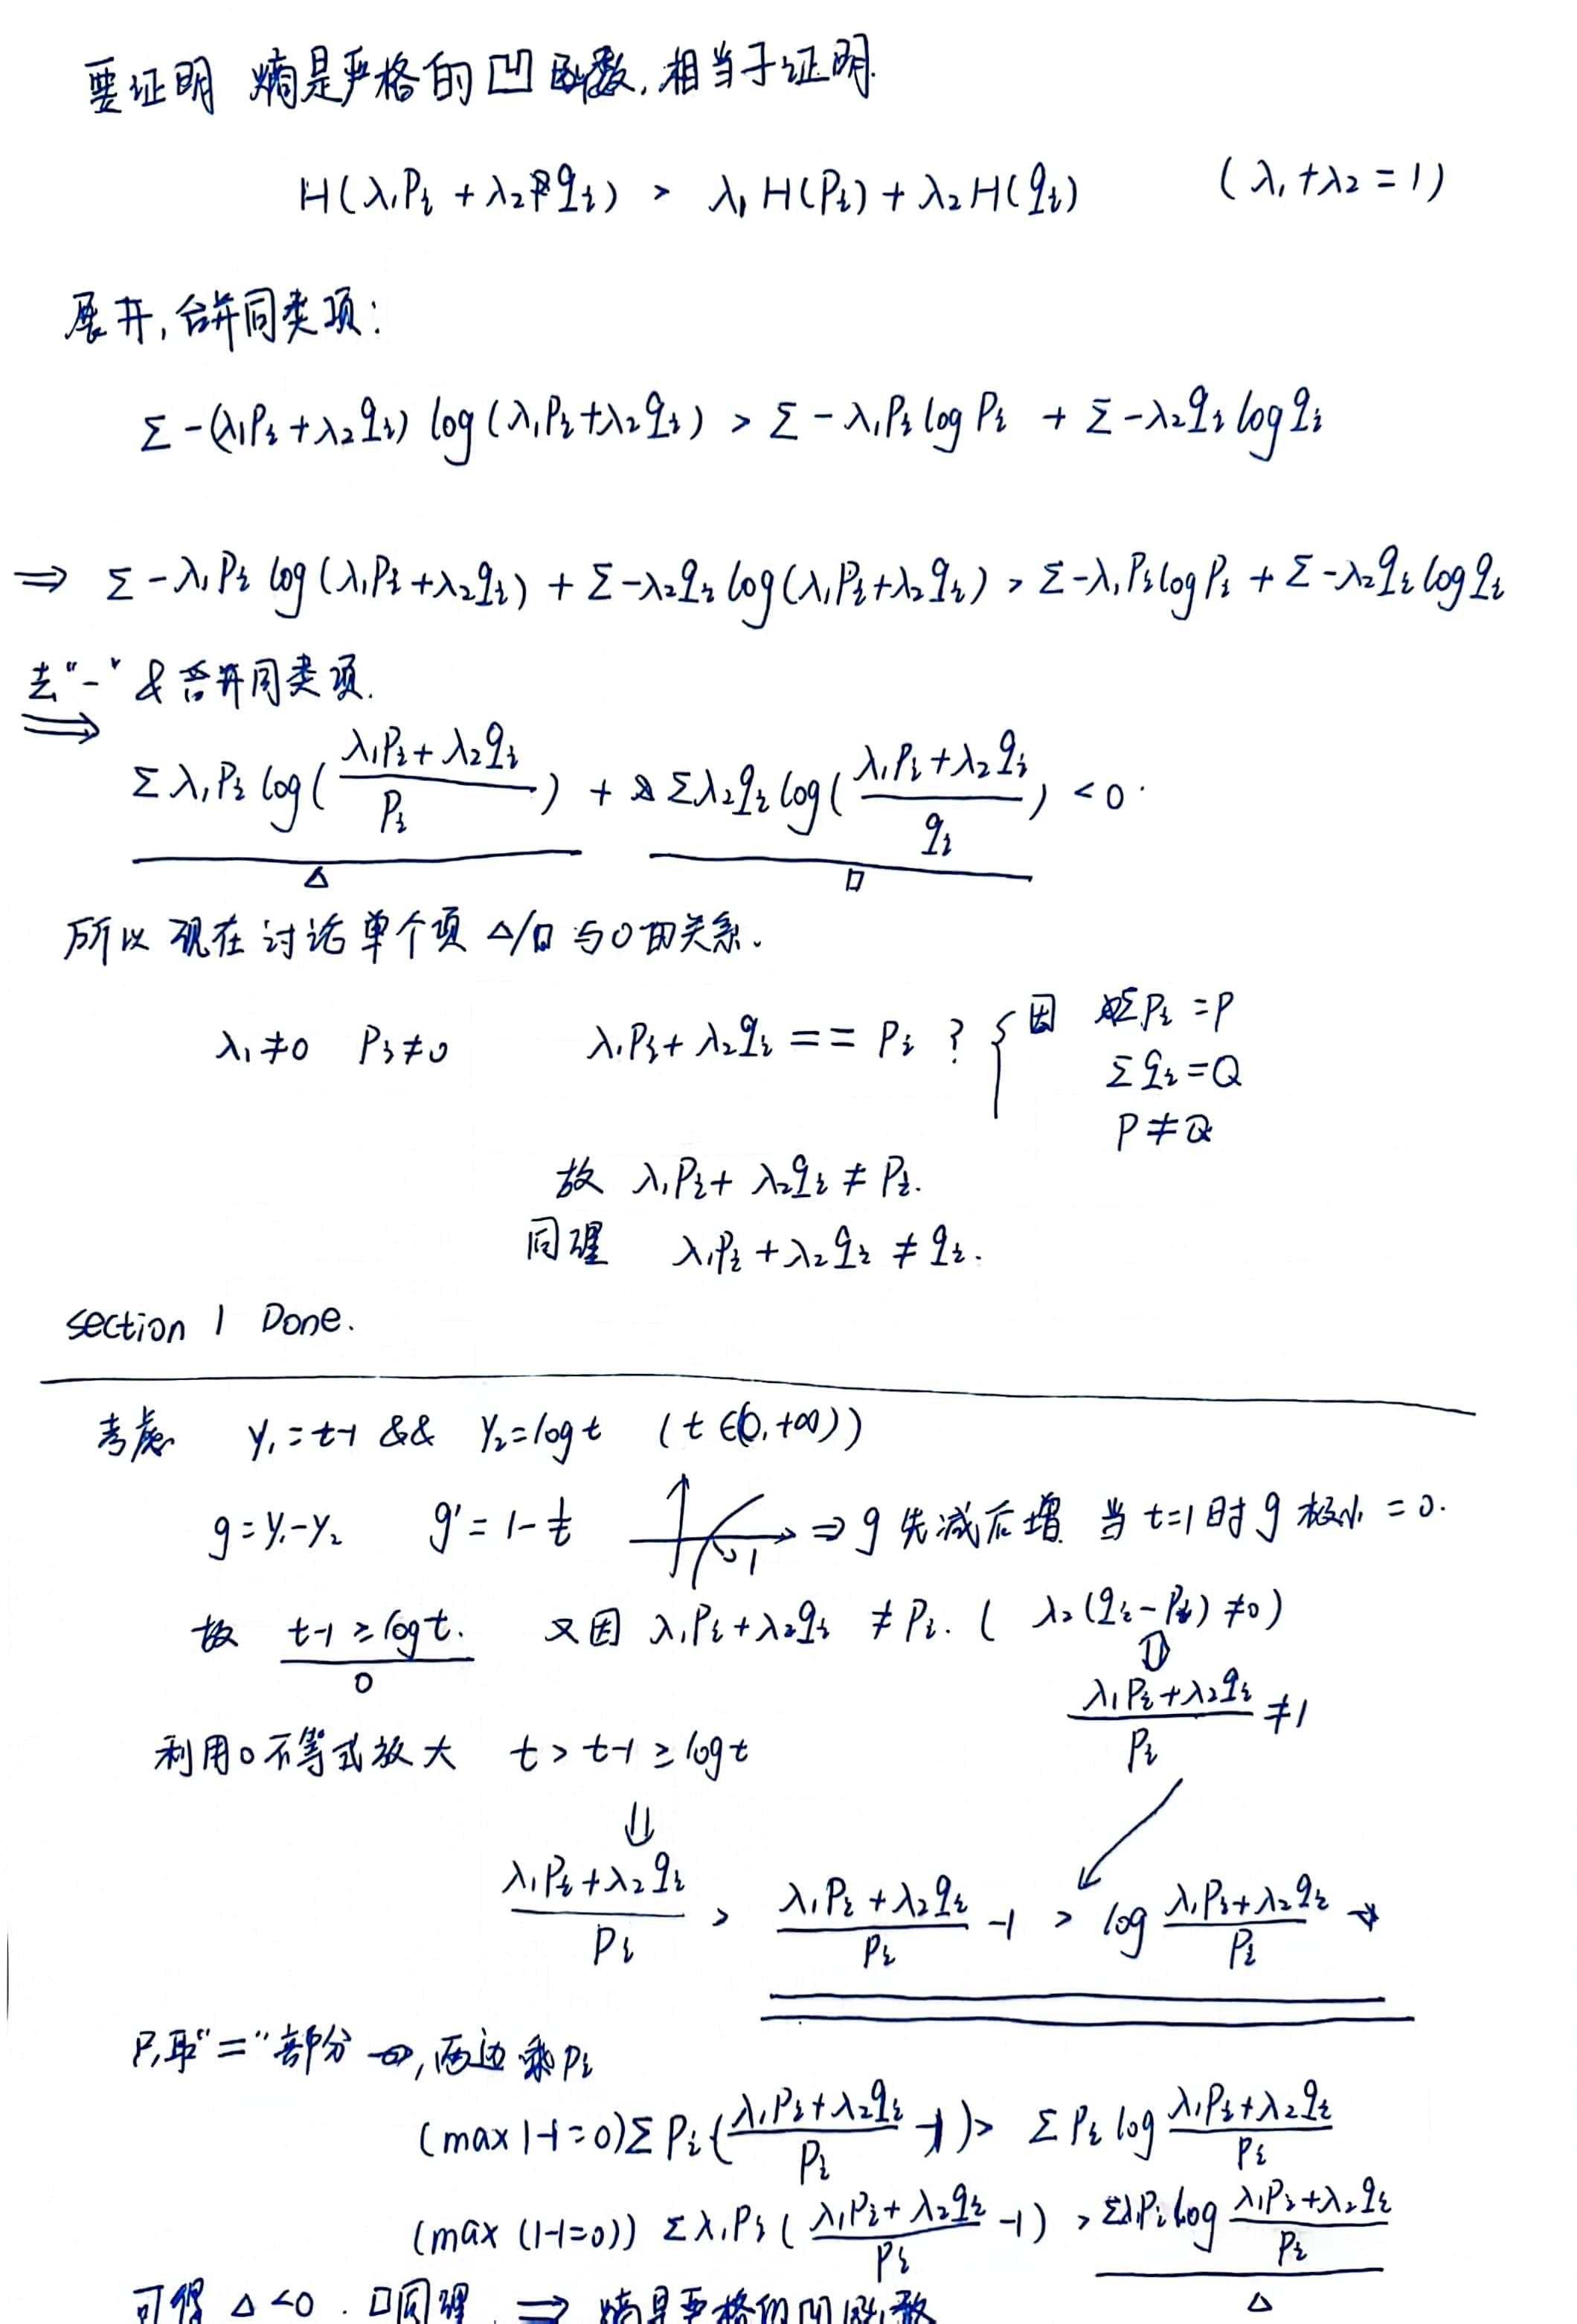 要证明 熵是严格的凹函数,相当于证明.
H(λ₁Pᵢ + λ₂qᵢ) > λ₁H(Pᵢ) + λ₂H(qᵢ) (λ₁+λ₂=1)
展开,合并同类项:
Σ -(λ₁Pᵢ+λ₂qᵢ) log(λ₁Pᵢ+λ₂qᵢ) > Σ -λ₁Pᵢ log Pᵢ + Σ -λ₂qᵢ log qᵢ
⇒ Σ -λ₁Pᵢ log(λ₁Pᵢ+λ₂qᵢ) + Σ -λ₂qᵢ log(λ₁Pᵢ+λ₂qᵢ) > Σ -λ₁Pᵢ log Pᵢ + Σ -λ₂qᵢ log qᵢ
去"-" & 合并同类项.
⇒ Σ λ₁Pᵢ log((λ₁Pᵢ+λ₂qᵢ)/Pᵢ) + Σ λ₂qᵢ log((λ₁Pᵢ+λ₂qᵢ)/qᵢ) < 0.
△ □
所以 现在讨论单个项 △/□ 与0的关系.
λ₁≠0 Pᵢ≠0 λ₁Pᵢ+λ₂qᵢ == Pᵢ ? { 因 ΣPᵢ=P
Σqᵢ=Q
P≠Q
故 λ₁Pᵢ+λ₂qᵢ ≠ Pᵢ.
同理 λ₁Pᵢ+λ₂qᵢ ≠ qᵢ.
section 1 Done.
考虑 y₁=t-1 && y₂=log t (t∈(0,+∞))
g=y₁-y₂ g'=1-1/t 1 ⇒ g 先减后增 当t=1时 g 极小=0.
故 t-1≥log t. 又因 λ₁Pᵢ+λ₂qᵢ ≠ Pᵢ. ( λ₂(qᵢ-Pᵢ)≠0)
○
(λ₁Pᵢ+λ₂qᵢ)/Pᵢ ≠ 1
利用○不等式放大 t > t-1 ≥ log t
⇓
(λ₁Pᵢ+λ₂qᵢ)/Pᵢ > (λ₁Pᵢ+λ₂qᵢ)/Pᵢ -1 > log (λ₁Pᵢ+λ₂qᵢ)/Pᵢ
只取"="部分,两边乘Pᵢ
(max 1-1=0) Σ Pᵢ((λ₁Pᵢ+λ₂qᵢ)/Pᵢ -1) > Σ Pᵢ log (λ₁Pᵢ+λ₂qᵢ)/Pᵢ
(max (1-1=0)) Σ λ₁Pᵢ((λ₁Pᵢ+λ₂qᵢ)/Pᵢ -1) > Σλ₁Pᵢ log (λ₁Pᵢ+λ₂qᵢ)/Pᵢ
△
可得 △<0. □同理 ⇒ 熵是严格的凹函数